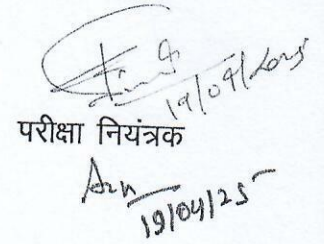 19/04/2025
परीक्षा नियंत्रक
19/04/25